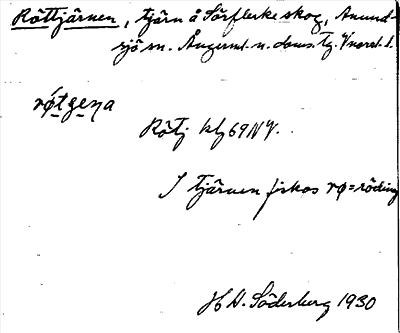 Röttjärnen, tjärn å Sörflerke skog, Anund-
sjö sn. Ångerml. n. doms. tg. V.norrl. l.
rö́tʒena
Rötj kbl 69 NV.
I tjärnen fiskas rø = röding
H. D. Söderberg 1930